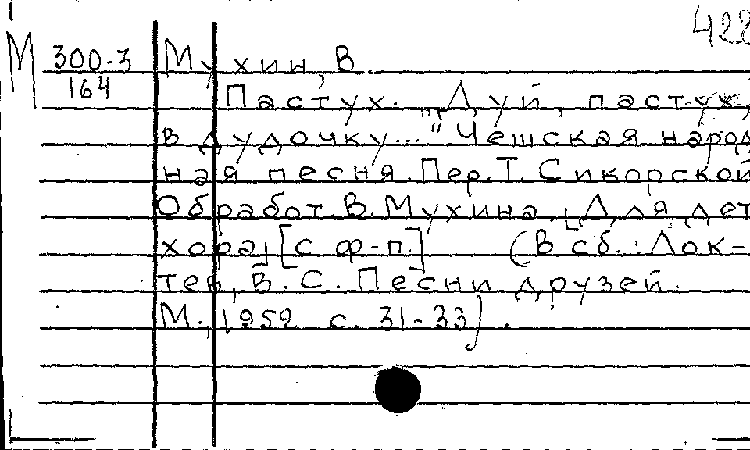 422
М 300-3 Мухин, В.
164
Пастух. „Дуй, пастух,
в дудочку..." Чешская народ
ная песня. Пер. Т. Сикорской
Обработ. В. Мухина. [Для дет
хора] [с ф-п.] (В сб.: Лок-
тев, В. С. Песни друзей.
М., 1959 с. 31-33).